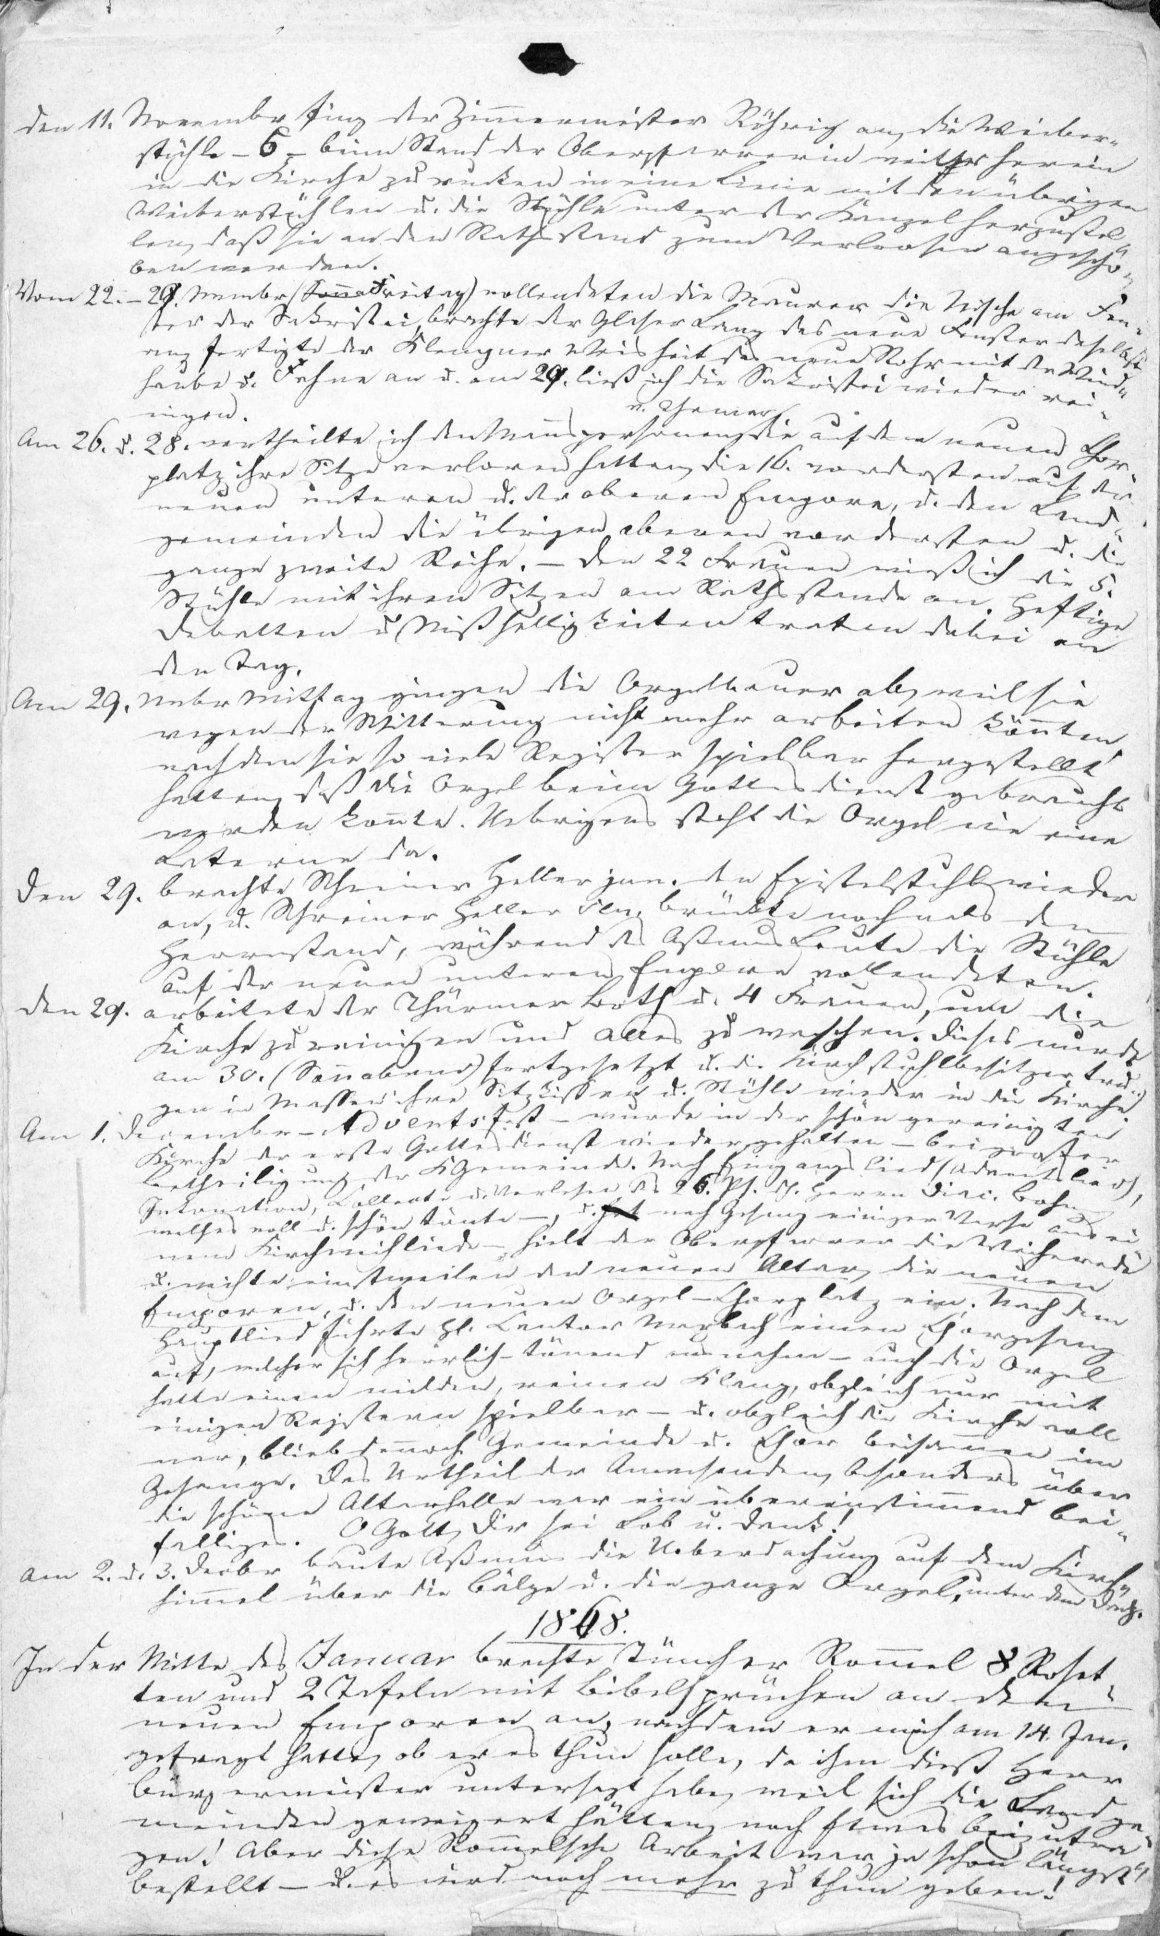 den 11. November fing der Zimmermeister Röhrig an, die Weiber-
stühle – 6 – beim Stand der Oberpfarrerin weiter herein
in die Kirche zu rucken in eine Linie mit den übrigen
Weiberstühlen u. die Stühle unter der Kanzel herzustel-
len, daß sie an den Rathsstand zum Verloosen angescho-
ben werden.
Vom 22. – 29. Nvmbr (Freitag) vollendeten die Maurer die Nische am Fen-
ster der Sakristei, brachte der Glaser Lang das neue Fenster daselbst
an, fertigte der Klempner Weisheit das neue Rohr mit der Wind-
haube u. Fahne an u. am 29. ließ ich die Sakristei wieder rei-
nigen.
v. Themar
Am 26. u. 28. vertheilte ich den Mannspersonen, die auf dem neuen Chor-
platz ihre Sitze verloren hatten, die 16. vordersten auf der
neuen unteren u. der oberen Empore, u. den Land-
gemeinden die übrigen oberen vordersten u. die
ganze zweite Reihe. – Den 22 Frauen wies ich die 5.
Stühle mit ihren Sitzen am Rathsstande an. Heftige
Debatten u. Mißhelligkeiten traten dabei an
den Tag.
Am 29. Nvbr Mittag gingen die Orgelbauer ab, weil sie
wegen der Witterung nicht mehr arbeiten könnten,
nachdem sie so viele Register spielbar hergestellt
hatten, daß die Orgel beim Gottesdienst gebraucht
werden konnte. Uebrigens steht die Orgel wie eine
Laterne da.
Den 29. brachte Schreiner Heller jun. den Epistelstuhl wieder
an, u. Schreiner Heller sen. brückte nochmals den
Herrnstand, während des Aßmus Leute die Stühle
auf der neuen unteren Empore vollendeten.
Den 29. arbeitete der Thürmer Both u. 4 Frauen, um die
Kirche zu reinigen und Alles zu waschen. Dieses wurde
am 30. (Sonnabend) fortgesetzt u. die Kirchstuhlbesitzer tru-
gen in Massen ihre Sitzkissen u. Stühle wieder in die Kirche.
Am 1. December – Adventsfest – wurde in der schön gereinigten
Kirche der erste Gottesdienst wieder gehalten – bei großer
Betheiligung der KGemeinde. Nach Eingangslied (Adventslied),
Intonation, Collecte u. Verlesen des 26. Ps. dh. Herrn Diac. Bohn,
welches voll u. schön tönte –, u. nach Gesang einiger Verse aus ei-
nem Kirchweihliede – hielt der Oberpfarrer die Weiherede
u. weihte einstweilen den neuen Altar, die neuen
Emporen, u. den neuen Orgel-Chorplatz ein. Nach dem
Hauptlied führte H. Cantor Maybach einen Chorgesang
auf, welcher sich herrlich-tönend ausnahm – auch die Orgel
hatte einen milden, reinen Klang, obgleich nur mit
einigen Registern spielbar – u. obgleich die Kirche voll
war, blieb dennoch Gemeinde u. Chor beisammen im
Gesange. Das Urtheil der Anwesenden, besonders über
die schöne Altarhalle war ein übereinstimmend bei-
fälliges. O Gott, Dir sei Lob u. Dank!
Am 2. u. 3. Decbr baute Aßmus die Ueberdachung auf dem Kirch-
himmel über die Bälge u. die ganze Orgel, unter dem Dach.
1868.
In der Mitte des Januar brachte Tüncher Rommel 8 Roset-
ten und 2 Tafeln mit Bibelsprüchen an den
neuen Emporen an, nachdem er mich am 14. Jan.
gefragt hatte, ob er es thun solle, da ihm dieß Herr
Bürgermeister untersagt habe, weil sich die Landge-
meinden geweigert hätten, noch Etwas beizutra-
gen! Aber diese Rommelsche Arbeit war ja schon längst
bestellt – u. es wird noch mehr zu thun geben!